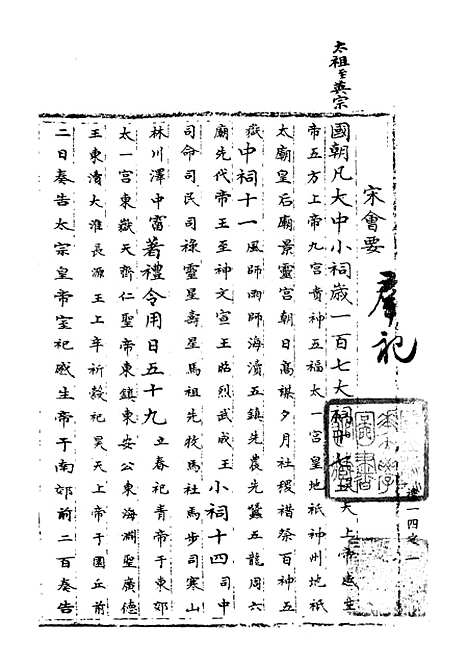 太祖至英宗
宋會要
羣祀
國朝凡大中小祠歲一百七大祠
天上帝感生
帝五方上帝九宮貴神五福太一宮皇地祇神州地祇
太廟皇后廟景靈宮朝日高禖夕月社稷禘祭百神五
嶽中祠十一風師雨師海瀆五鎮先農先蠶五龍周六
廟先代帝王至神文宣王昭烈武成王小祠十四司中
司命司民司祿靈星壽星馬祖先牧馬社馬步司寒山
林川澤中霤著禮令用日五十九立春祀青帝于東郊
太一宮東嶽天齊仁聖帝東鎮東安公東海淵聖廣德
王東瀆大淮長源王上辛祈穀祀昊天上帝于圜丘前
二日奏告太宗皇帝室祀感生帝于南郊前二日奏告
禮一四之一